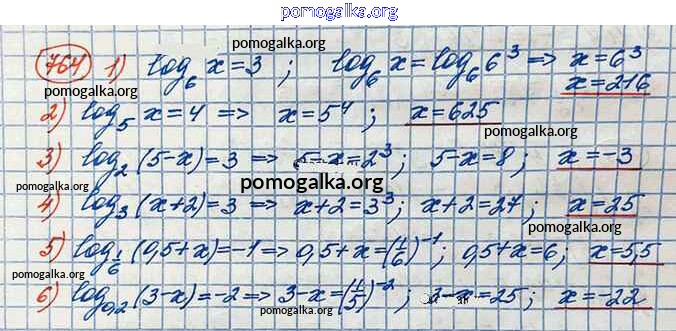 pomogalka.org
764 1) log₆ x = 3 ; log₆ x = log₆ 6³ => x = 6³
pomogalka.org
x = 216
pomogalka.org
2) log₅ x = 4 => x = 5⁴ ; x = 625
pomogalka.org
3) log₂ (5-x) = 3 => 5-x = 2³ ; 5-x = 8 ; x = -3
pomogalka.org pomogalka.org
4) log₃ (x+2) = 3 => x+2 = 3³ ; x+2 = 27 ; x = 25
pomogalka.org
5) log_{1/6} (0,5+x) = -1 => 0,5+x = (1/6)⁻¹ ; 0,5+x = 6 ; x = 5,5
pomogalka.org
6) log_{0,2} (3-x) = -2 => 3-x = (1/5)⁻² ; 3-x = 25 ; x = -22
pomogalka.org